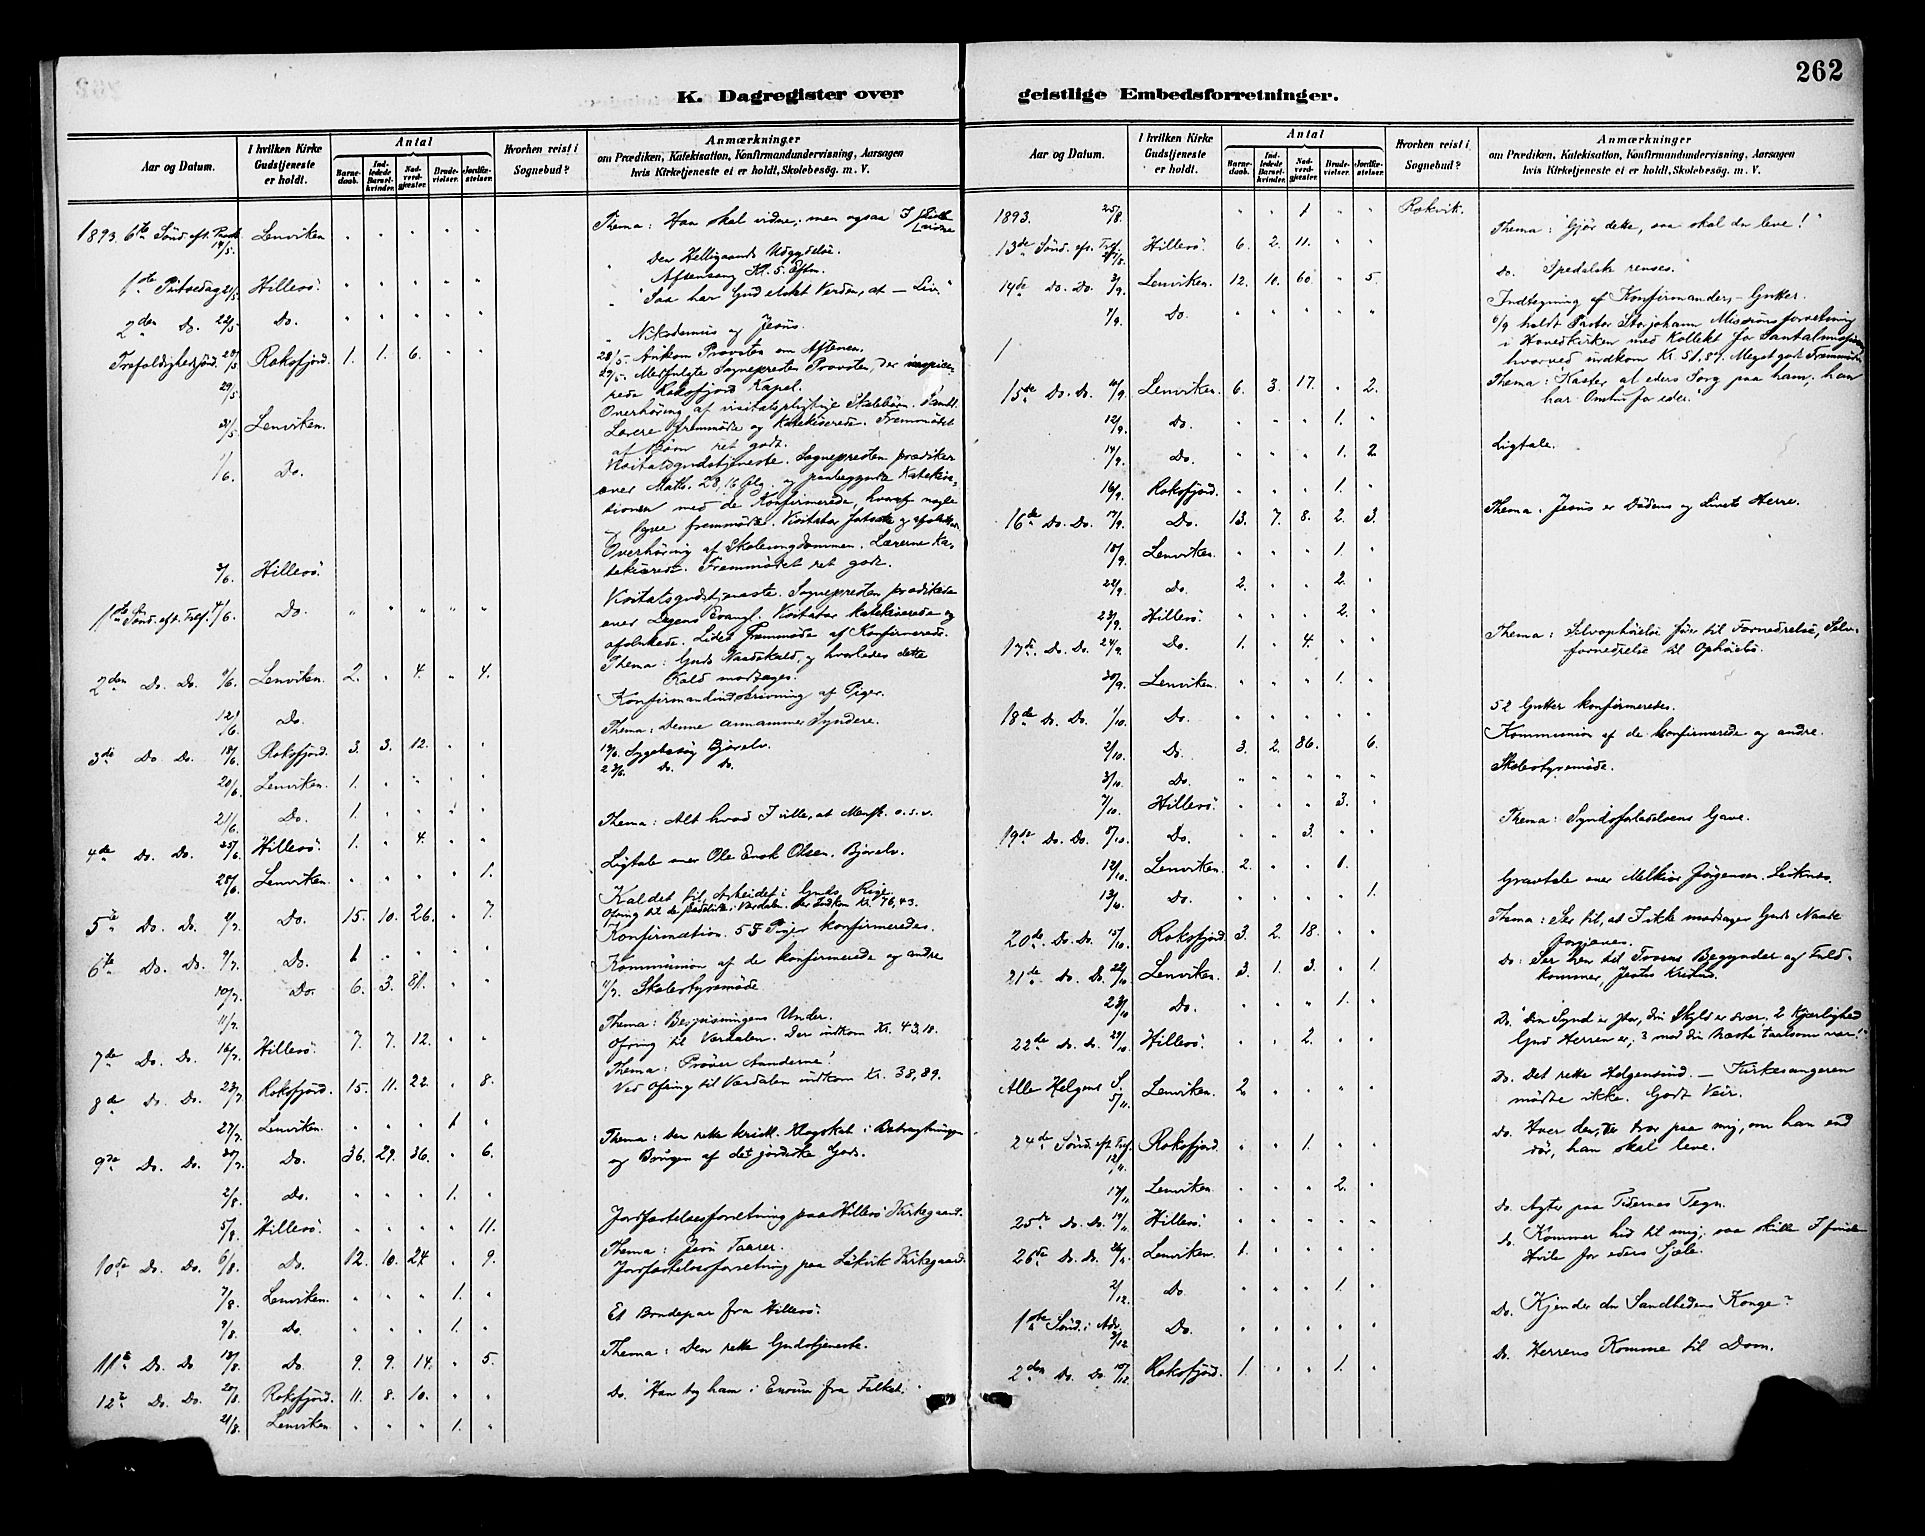 262
K. Dagregister over geistlige Embedsforretninger.
Aar og Datum. I hvilken Kirke Gudstjeneste er holdt. Antal Barnedaab. Indledede Barselkvinder. Nadverdgjæster. Brudevielser. Jordfæstelser. Hvorhen reist i Sognebud? Anmærkninger om Prædiken, Katekisation, Konfirmandundervisning, Aarsagen hvis Kirketjeneste ei er holdt, Skolebesøg. m. V.
1893. 6te Sønd. eft. Paask. 14/5. Lenviken " " " " " Thema: Han skal vidne, men ogsaa I skulle vidne
" Den Helligaands Udgydelse.
Aftensang Kl. 5. Eftm.
1ste Pintsedag 21/5. Hillesö. " " " " " " "Saa har Gud elsket Verden, at — Liv."
2den Do. 22/5. Do. " " " " " " Nikodemus og Jesus.
Trefoldighedssönd. 28/5. Roksfjord. 1. 1. 6. " " 28/5. Ankom Provsten om Aftenen.
29/5. 29/5. Medfulgte Sognepresten Provsten, der inspicerede Roksfjord Kapel.
31/5. Lenviken. Overhøring af visitatspligtige Skolebørn. Samtl.
Lærere fremmødte og katekiserede. Fremmødet
af Børn ret godt.
1/6. Do. Visitatsgudstjeneste. Sognepresten prædiker
over Matth. 28,16 flg. og paabegyndte Katekisationen med de Konfirmerede, hvoraf nogle
fremmødte. Visitator fortsatte og afsluttede.
3/6. Hillesö. Overhøring af Skoleungdommen. Lærerne katekiserede. Fremmødet ret godt.
1ste Sönd. eft. Tref. 4/6. Do. " " " " " Visitatsgudstjeneste. Sognepresten prædikede
over Dagens Evangl. Visitator katekiserede og
afsluttede. Lidet Fremmøde af Konfirmerede.
2den Do. Do. 11/6. Lenviken. 2. " 4. " 4. Thema: Guds Naadskald, og hvorledes dette
Kald modtages.
12/6. Do. Konfirmandindskrivning af Piger.
3die Do. Do. 18/6. Roksfjord. 3. 3. 12. " " Thema: Denne annammer Syndere.
20/6. Lenviken. 1. " " " " 19/6. Sygebesøg Bjorelv.
23/6. Do. Do.
21/6. Do. 1. " " " "
4de Do. Do. 25/6. Hillesö. 1. " 4. " " Thema: Alt hvad I ville, at Mensk. o.s.v.
28/6. Lenviken. " " " " 1. Ligtale over Ole Enok Olsen, Bjorelv.
5te Do. Do. 2/7. Do. 15. 10. 26. " 7. Kaldet til Arbeidet i Guds Rige.
Ofring til de skadelidte i Værdalen. Der indkom Kr. 76,43.
6te Do. Do. 9/7. Do. 1 " " " " Konfirmation. 55 Piger konfirmeredes.
10/7. Do. 6. 3. 81. " " Kommunion af de konfirmerede og andre
11/7. 11/7. Skolestyremøde
7de Do. Do. 16/7. Hillesö. 7. 7. 12. " " Thema: Bespisningens Under.
Ofring til Værdalen. Der indkom Kr. 43,10.
8de Do. Do. 23/7. Roksfjord. 15. 11. 22. " 8. Thema: Prøver Aanderne!
Ved Ofring til Værdalen indkom Kr. 38,89.
27/7. Lenviken. " " " 1 "
9de Do. Do. 30/7. Do. 36. 29. 36. " 6. Thema: Den rette kristl. Klogskab i Betragtningen
og Brugen af det jordiske Gods.
2/8. Do. " " " 1. "
5/8. Hillesö. " " " " 11. Jordfæstelsesforretning paa Hillesö Kirkegaard.
10de Do. Do. 6/8. Do. 12. 10. 24. " 9. Thema: Jesu Taarer.
Jordfæstelsesforretning paa Løkvik Kirkegaard.
7/8. Lenviken. " " " 1. "
9/8. Do. " " " 1. " Et Brudepar fra Hillesö.
11te Do. Do 13/8. Do. 9. 9. 14. " 5. Thema: Den rette Gudstjeneste.
12te Do. Do. 20/8. Roksfjord. 11. 8. 10. " " Do. "Han tog ham i Enrum fra Folket."
21/8. Lenviken. " " " 1. "
Aar og Datum. I hvilken Kirke Gudstjeneste er holdt. Antal Barnedaab. Indledede Barselkvinder. Nadverdgjæster. Brudevielser. Jordfæstelser. Hvorhen reist i Sognebud? Anmærkninger om Prædiken, Katekisation, Konfirmandundervisning, Aarsagen hvis Kirketjeneste ei er holdt, Skolebesøg. m. V.
1893. 25/8. " " 1 " " Rokvik.
13de Sönd. eft. Tref. 27/8. Hillesö. 6. 2. 11. " " Thema: "Gjør dette, saa skal du leve!"
14de Do. Do. 3/9. Lenviken. 12. 10. 60. " 5. Do. "Spedalske renses."
7/9. Do. " " " " " Indtegning af Konfirmander, — Gutter.
6/9 holdt Pastor Storjohann Missionsforretning
i Hovedkirken med Kollekt for Santalmissionen
hvorved indkom Kr. 51,87. Meget godt Fremmøde.
15de Do. Do. 10/9. Lenviken. 6. 3. 17. " 2. Thema: "Kaster al eders Sorg paa ham, han
har Omhu for eder."
12/9. Do. " " " 1. "
14/9. Do. " " " 1. 2. Ligtale.
16/9. Roksfjord. " " " 1. "
16de Do. Do. 17/9. Do. 13. 7. 8. 2. 3. Thema: Jesus er Dødens og Livets Herre.
18/9. Lenviken. " " " 1. "
22/9. Do. 2. " " 2. "
23/9. Hillesö. " " " 2. "
17de. Do. Do. 24/9. Do. 1. " 4. " " Thema: Selvophøielse fører til Fornedrelse, Selvfornedrelse til Ophøielse.
30/9. Lenviken. " " " 1. "
18de Do. Do. 1/10. Do. " " " " " 52 Gutter konfirmeredes.
2/10. Do. 3. 2. 86. " 6. Kommunion af de konfirmerede og andre.
3/10. Do. " " " " " Skolestyremøde.
7/10. Hillesö. " " " 3. "
19de Do. Do. 8/10. Do. " " 3. " " Thema: Syndsforladelsens Gave.
12/10. Lenviken. 2. " " 1. "
13/10. Do. " " " " 1. Gravtale over Melkior Jörgensen. Leiknes.
20de. Do. Do. 15/10. Roksfjord. 3. 2. 18. " " Thema: Ser til, at I ikke modtager Guds Naade
forgjæves.
21de Do. Do. 22/10 Lenviken. 3. 1. 3. " 1. Do: Ser hen til Troens Begynder og Fuldkommer, Jesus Kristus.
23/10 Do. " " " 1. "
22de Do. Do. 29/10 Hillesö. " " 2. " " Do. "din Synd er stor, din Skyld er svær. 2 Kjærlighed
Gud Herren er; 3 mod din Næste taalsom vær!"
Alle Helgens S. 5/11. Lenviken. 2 " " " " Do. Det rette Helgensind. — Kirkesangeren
mødte ikke. Godt Veir.
24de Sønd. eft. Tref. 12/11. Roksfjord. " " 1. " " Do. Hver den, der tror paa mig, om han end
dør, han skal leve.
17/11 Lenviken " " " 2. "
25de Do. Do. 19/11 Hillesö. " " " " " Do. Agter paa Tidernes Tegn.
26de Do. Do. 26/11 Lenviken. 1. " " " " Do. Kommer hid til mig, saa skulle I finde
Hvile for eders Sjæle.
2/12. Do. " " " 1. "
1ste Sönd. i Adv. 3/12. Do. " " " " " Do. Kjender du Sandhedens Konge?
2den Do. Do. 10/12. Roksfjord. 1. " " 1. " Do. Herrens Komme til Dom.